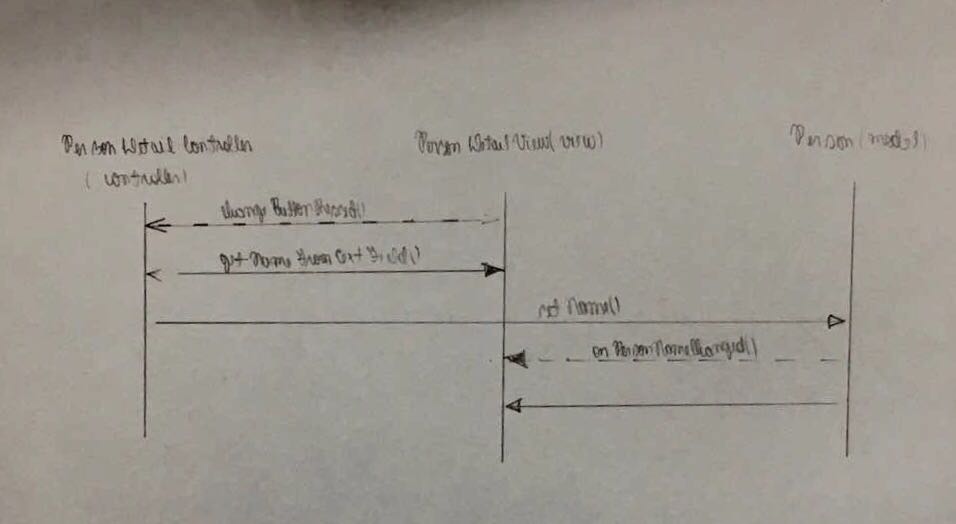 Person Detail Controller
(controller)
Person Detail View(view)
Person(model)
change Button Pressed()
get Name From Text Field()
set Name()
on Person Name Changed()